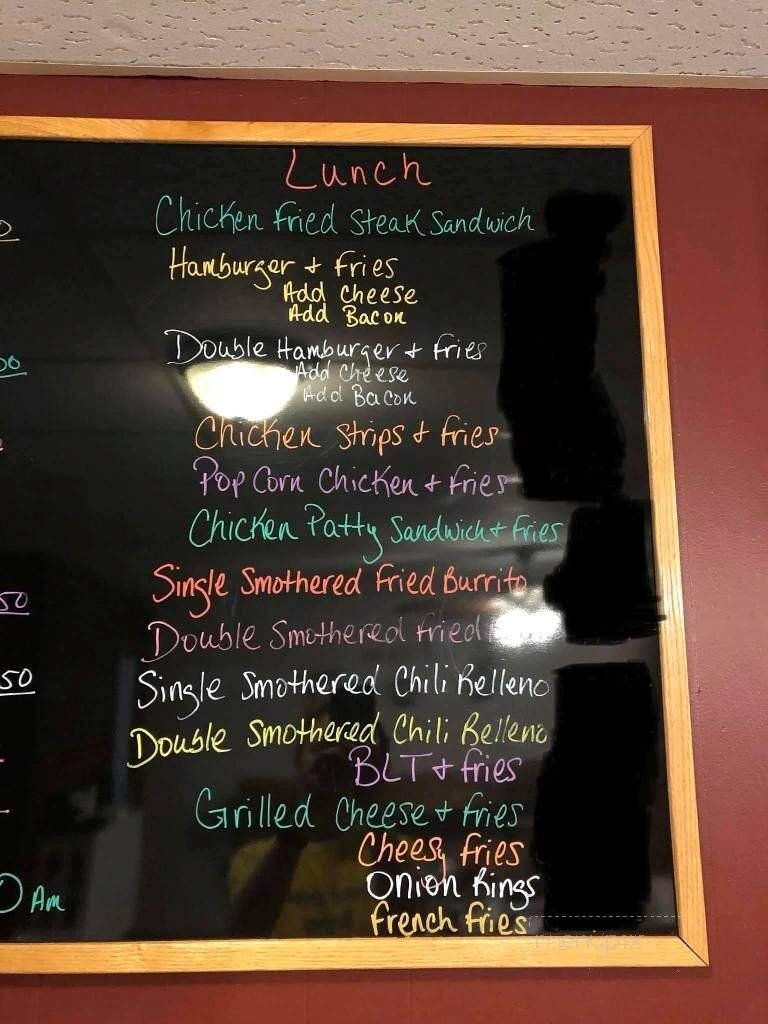 Lunch
Chicken Fried Steak Sandwich
Hamburger + Fries
Add Cheese
Add Bacon
Double Hamburger + Fries
Add Cheese
Add Bacon
Chicken Strips + Fries
Pop Corn Chicken + Fries
Chicken Patty Sandwich + Fries
Single Smothered Fried Burrito
Double Smothered Fried
50
Single Smothered Chili Relleno
50
Double Smothered Chili Relleno
BLT + Fries
Grilled Cheese + Fries
Cheesy Fries
Onion Rings
Am
French Fries
menupix